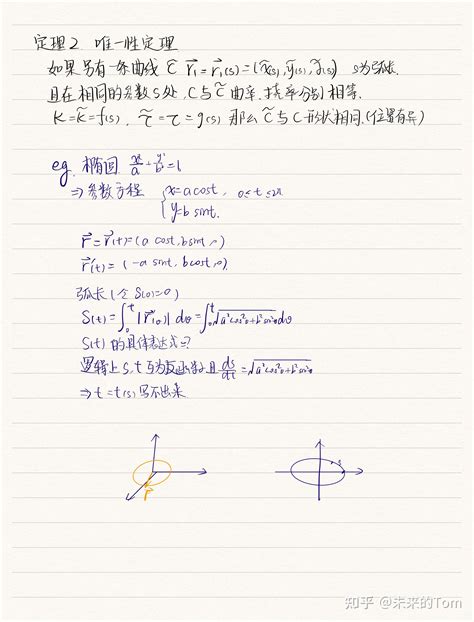 定理2 唯一性定理
如果另有一条曲线 C̃ r⃗₁=r⃗₁(s)=(x̃(s),ỹ(s),z̃(s)) s为弧长.
且在相同的参数s处,C与C̃曲率.挠率分别相等.
K=K̃=f(s), τ̃=τ=g(s) 那么C̃与C形状相同.(位置有异)
eg. 椭圆 x²/a²+y²/b²=1
⇒参数方程 {x=a cost, y=b sint. 0≤t≤2π
r⃗=r⃗(t)=(a cost,b sint,0)
r⃗'(t)=(-a sint, b cost,0)
弧长(令S(0)=0)
S(t)=∫₀ᵗ|r⃗'(θ)| dθ=∫₀ᵗ√(a²cos²θ+b²sin²θ)dθ
S(t)的具体表达式=?
逻辑上s.t互为反函数且 ds/dt=√(a²cos²θ+b²sin²θ)
⇒t=t(s)写不出来
r⃗
知乎 @未来的Tom